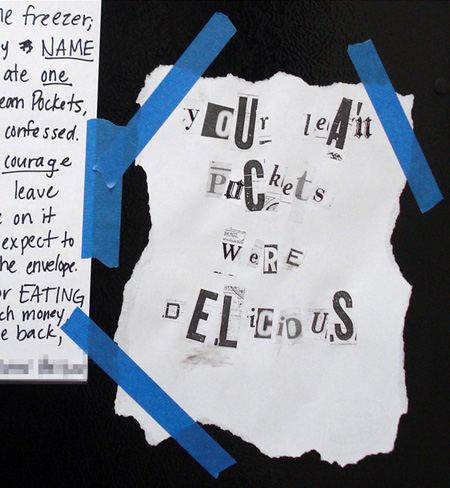 he freezer,
y NAME
ate one
ean Pockets,
confessed.
courage
leave
e on it
expect to
he envelope.
or EATING
ch money,
e back,
yoUr leAn
PoCkets
WeRE
DELiCioUS